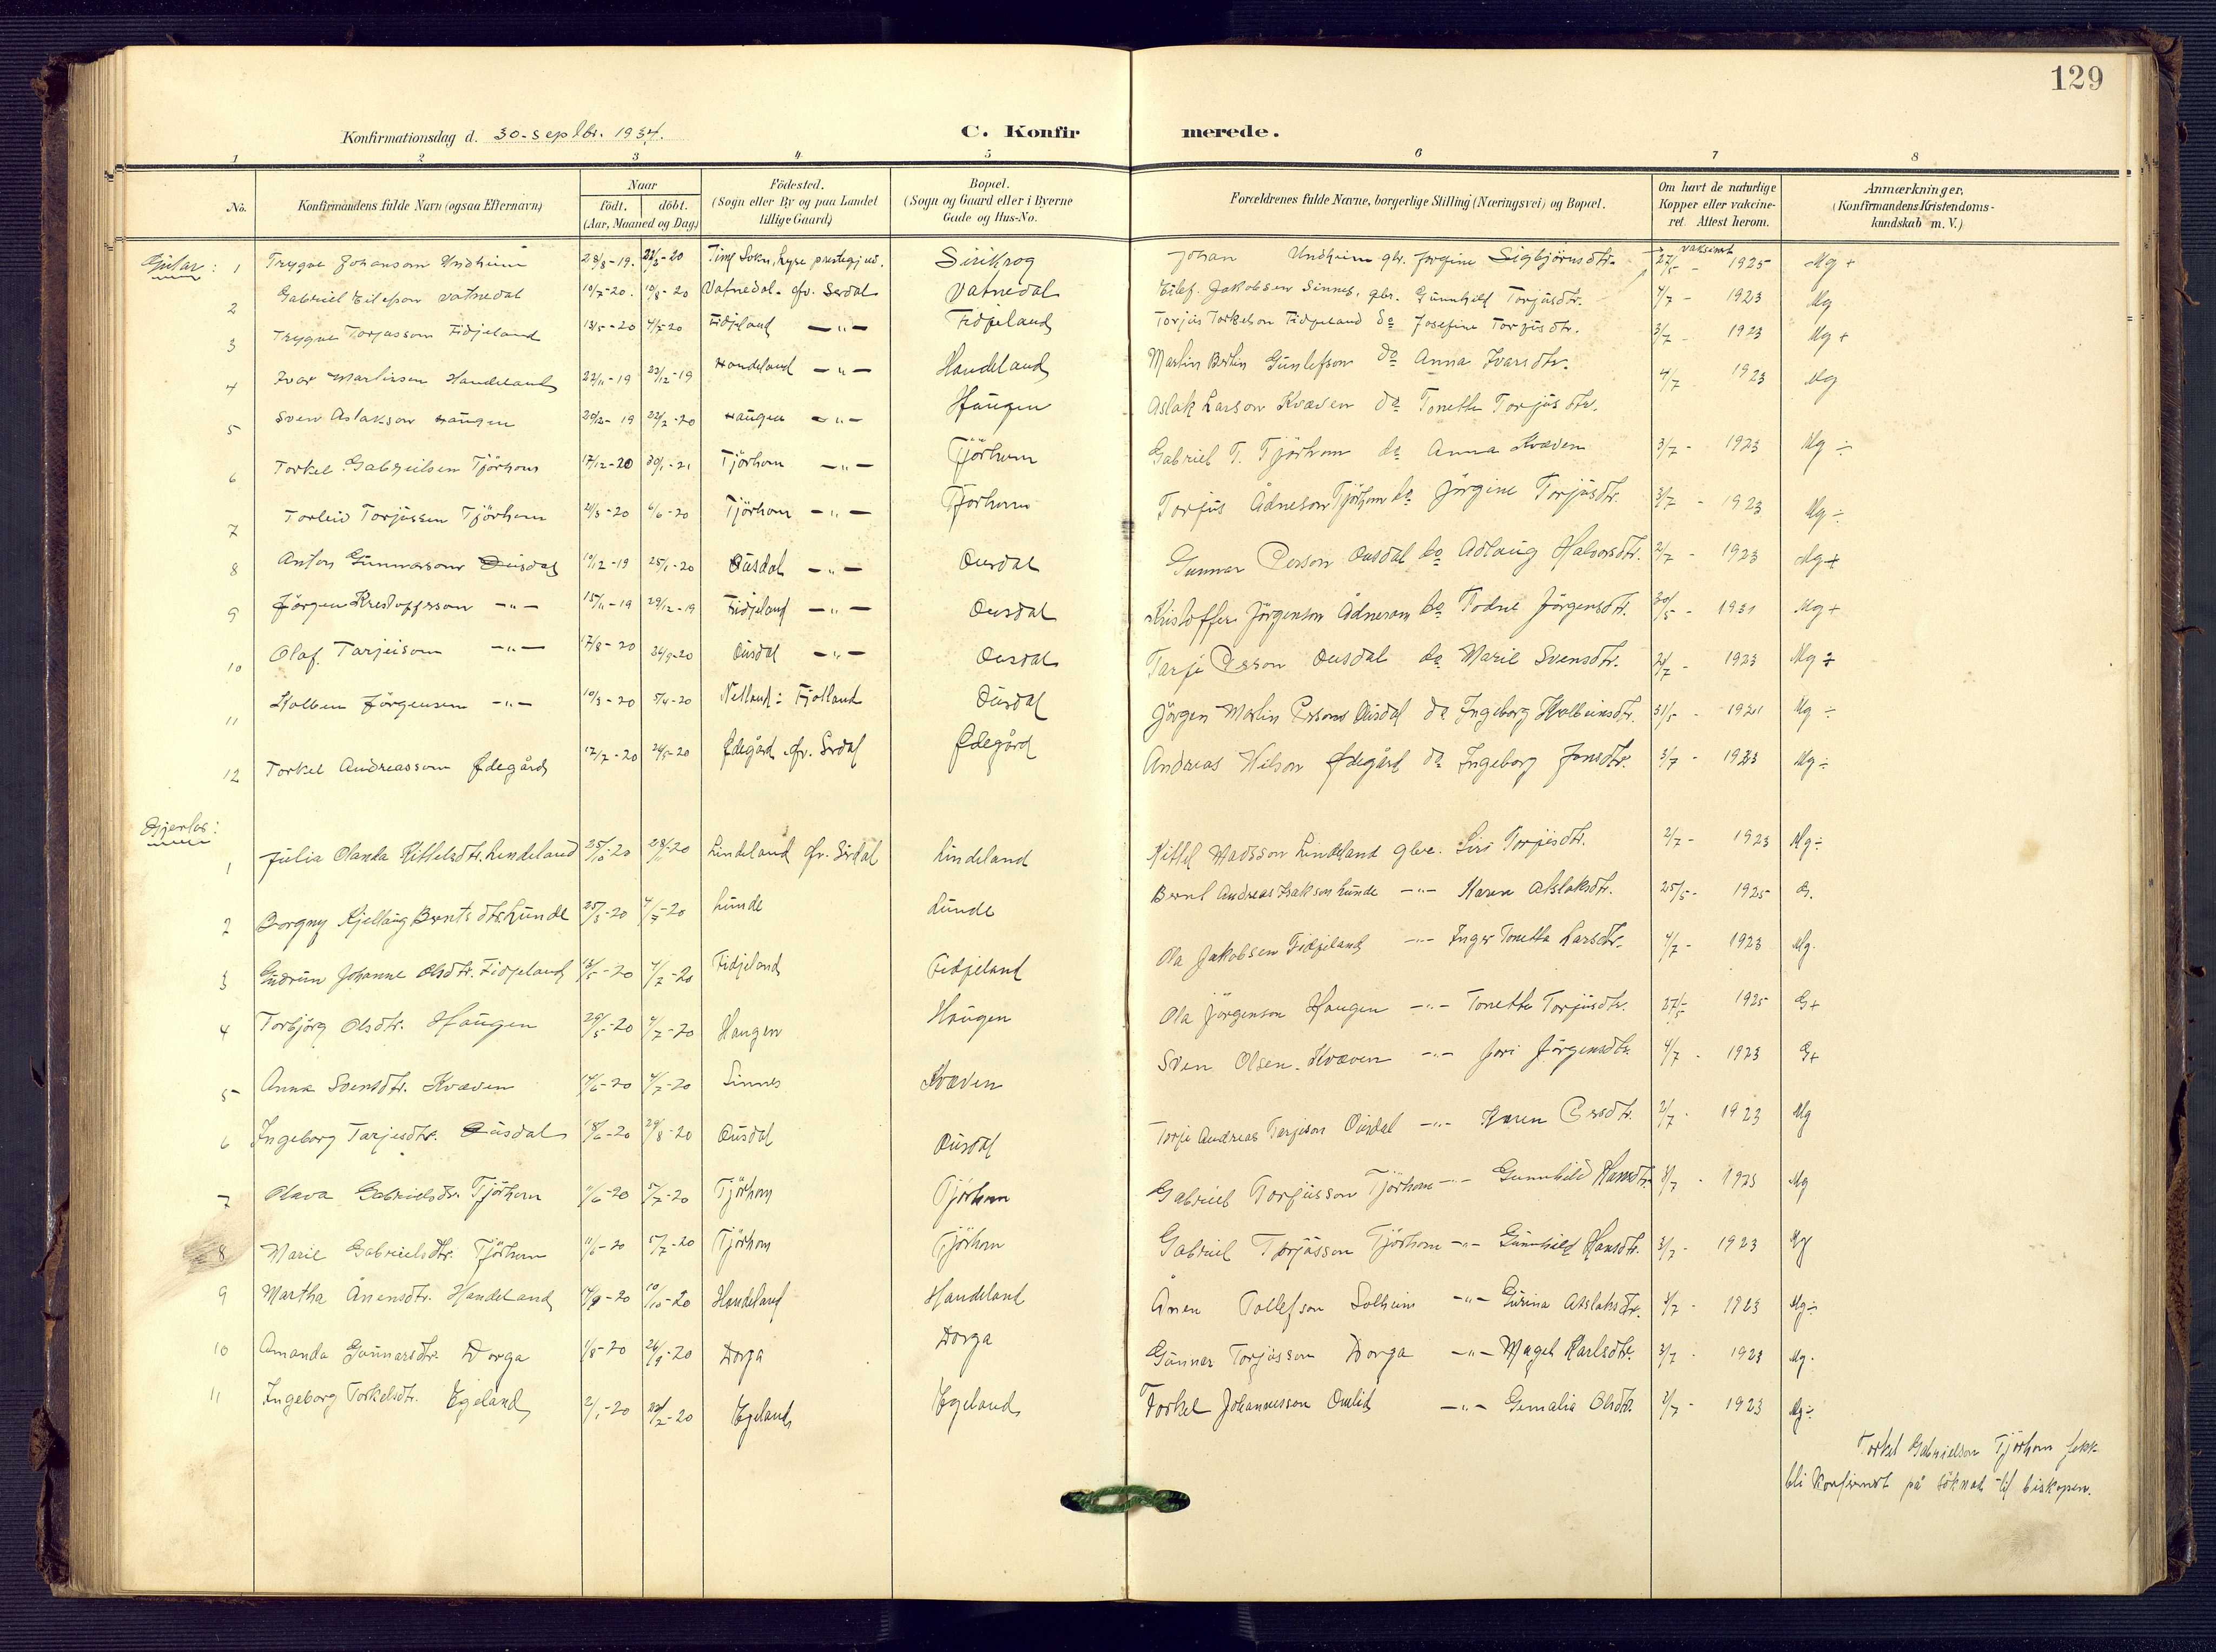 129
Konfirmationsdag d. 30-septbr. 1934. C. Konfirmerede.
1 2 3 4 5 6 7 8
No. Konfirmandens fulde Navn (ogsaa Efternavn) Naar födt. döbt. (Aar, Maaned og Dag) Födested. (Sogn eller By og paa Landet tillige Gaard) Bopæl. (Sogn og Gaard eller i Byerne Gade og Hus-No. Forældrenes fulde Navne, borgerlige Stilling (Næringsvei) og Bopæl. Om havt de naturlige Kopper eller vakcineret. Attest herom. Anmærkninger, (Konfirmandens Kristendomskundskab m. V.)
Gutar:
1 Trygve Johanson Undheim 28/8-19. Time Sokn, Lye prestegjed. Sirikrog Johan Undheim gbr. Jorgine Sigbjörnsdtr. vaksinert 27/5 - 1925 Mg +
2 Gabriel Eilefson Vatnedal 10/7-20. 10/8-20 Vatnedal - öv. Serdal Vatnedal Eilef Jakobsen Sinnes, gbr. Gunnhild Torjusdtr. 4/7 - 1923 Mg
3 Trygve Torjusson Fidjeland 13/5-20 4/7-20 Fidjeland -"- Fidjeland Torjus Torkelson Fidjeland do Josefine Torjusdtr. 3/7 - 1923 Mg +
4 Ivar Martinsen Handeland 22/11-19 23/12-19 Handeland -"- Handeland Martin Bertin Gunlefson do Anna Ivarsdtr. 4/7 - 1923 Mg
5 Sven Aslakson Haugen 20/12-19 22/2-20 Haugen -"- Haugen Aslak Larson Kvæven do Tonette Torjusdtr.
6 Torkel Gabrielsen Tjörhom 17/12-20 30/1-21 Tjörhom -"- Tjörhom Gabriel T. Tjörhom do Anna Kvæven 3/7 - 1923 Mg ÷
7 Torleiv Torjussen Tjörhom 21/3-20 6/6-20 Tjörhom -"- Tjorhom Torjus Ådneson Tjörhom do Jörgine Torjusdtr. 3/7 - 1923 Mg ÷
8 Anton Gunnarsonn Ousdal 10/12-19 25/1-20 Ousdal -"- Ousdal Gunnar Person Ousdal do Adlaug Halvorsdtr. 2/7 - 1923 Mg +
9 Jörgen Kristofferson -"- 15/11-19 29/12-19 Fidjeland -"- Ousdal Kristoffer Jörgenson Ådneram do Todne Jörgensdtr. 30/5 - 1931 Mg +
10 Olaf Tarjeison -"- 17/8-20 26/9-20 Ousdal -"- Ousdal Tarje Person Ousdal do Marie Svensdtr. 2/7 - 1923 Mg ÷
11 Kolben Jörgensen -"- 10/3-20 5/4-20 Netland: Fjotland Ousdal Jörgen Martin Persons Ousdal do Ingeborg Kolbeinsdtr. 31/5 - 1921 Mg ÷
12 Torkel Andreassonn Ødegård 17/7-20 Ødegård öv. Serdal Ødegård Andreas Nilson Ødegård do Ingeborg Jonsdtr. 3/7 - 1923 Mg ÷
Gjentor:
1 Julia Olanda Kittelsdtr. Lindeland Lindeland öv. Sirdal Lindeland Kittel Madsson Lindeland gbr. Siri Torjusdtr. 2/7 - 1923 Mg ÷
2 Borgny Kjellaug Berntsdtr. Lunde 25/3-20 Lunde Lunde Bernt Andreas Isakson Lunde -"- Karen Atslaksdtr. 25/5 - 1925 G.
3 Gudrun Johanne Olsdtr. Fidjeland 13/5-20 4/7-20 Fidjeland Fidjeland Ola Jakobsen Fidjeland -"- Inger Tonetta Larsdtr. 4/7 - 1923 Mg.
4 Torbjörg Olsdtr. Haugen 29/5-20 4/7-20 Haugen Haugen Ola Jörgenson Haugen -"- Tonette Torjusdtr. 27/5 1925 G+
5 Anna Svensdtr. Kvæven 14/6-20 4/7-20 Sinnes Kvæven Sven Olsen Kvæven -"- Jori Jörgensdtr. 4/7 - 1923 G+
6 Ingeborg Tarjesdtr. Ousdal 18/6-20 29/8-20 Ousdal Ousdal Torje Andreas Tarjeson Ousdal -"- Karen Persdtr. 2/7 - 1923 Mg
7 Olava Gabrielsdtr. Tjörhom 11/6-20 5/7-20 Tjörhom Tjörhom Gabriel Torjusson Tjörhom -"- Gunnhild Hansdtr. 3/7 - 1923 Mg
8 Marie Gabrielsdtr. Tjörhom 11/6-20 5/7-20 Tjörhom Tjörhom Gabriel Torjusson Tjörhom -"- Gunnhild Hansdtr. 3/7 - 1923 Mg
9 Martha Ånensdtr. Handeland 14/9-20 10/10-20 Handeland Handeland Ånen Tollefson Solheim -"- Gurina Atslaksdtr. 3/7 - 1923 Mg ÷
10 Amanda Gunnarsdtr. Dorga 1/8-20 26/9-20 Dorga Dorga Gunnar Torjusson Dorga -"- Magel Karlsdtr. 3/7 - 1923 Mg.
11 Ingeborg Torkelsdtr. Egeland 2/1-20 22/2-20 Egeland Egeland Torkel Johannesson Omlid -"- Gemalia Olsdtr. 2/7 - 1923 Mg ÷
Torkel Gabrielson Tjörhom fekk
bli konfirmert på söknad til biskopen.